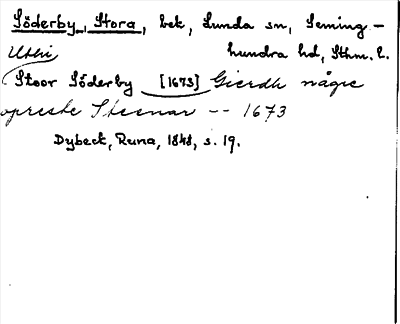 Söderby, Stora, bek, Lunda sn, Seming-
Uthi hundra hd, Sthm. l.
Stoor Söderby [1673] Gierdh någre
opreste Steenar -- 1673
Dybeck, Runa, 1848, s. 19.